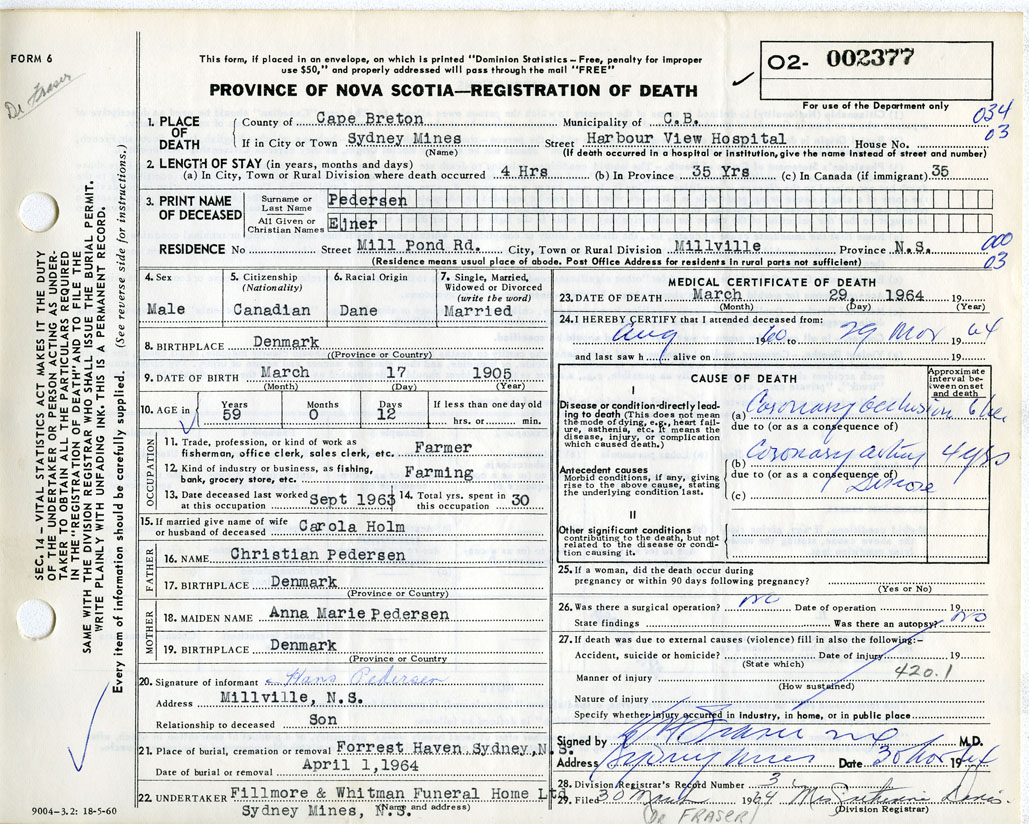 FORM 6
Dr Fraser
This form, if placed in an envelope, on which is printed "Dominion Statistics—Free, penalty for improper
use $50," and properly addressed will pass through the mail "FREE"
PROVINCE OF NOVA SCOTIA—REGISTRATION OF DEATH
O2- 002377
For use of the Department only
034
03
1. PLACE OF DEATH
County of Cape Breton Municipality of C.B.
If in City or Town Sydney Mines Street Harbour View Hospital House No.
(Name) (If death occurred in a hospital or institution, give the name instead of street and number)
2. LENGTH OF STAY (in years, months and days)
(a) In City, Town or Rural Division where death occurred 4 Hrs (b) In Province 35 Yrs (c) In Canada (if immigrant) 35
3. PRINT NAME OF DECEASED
Surname or Last Name Pedersen
All Given or Christian Names Ejner
RESIDENCE No Street Mill Pond Rd. City, Town or Rural Division Millville Province N.S.
000
03
(Residence means usual place of abode. Post Office Address for residents in rural parts not sufficient)
4. Sex
Male
5. Citizenship
(Nationality)
Canadian
6. Racial Origin
Dane
7. Single, Married,
Widowed or Divorced
(write the word)
Married
8. BIRTHPLACE Denmark
(Province or Country)
9. DATE OF BIRTH March 17 1905
(Month) (Day) (Year)
10. AGE in
Years Months Days If less than one day old
59 0 12 hrs. or min.
OCCUPATION
11. Trade, profession, or kind of work as
fisherman, office clerk, sales clerk, etc. Farmer
12. Kind of industry or business, as fishing,
bank, grocery store, etc. Farming
13. Date deceased last worked
at this occupation Sept 1963
14. Total yrs. spent in
this occupation 30
15. If married give name of wife
or husband of deceased Carola Holm
FATHER
16. NAME Christian Pedersen
17. BIRTHPLACE Denmark
(Province or Country)
MOTHER
18. MAIDEN NAME Anna Marie Pedersen
19. BIRTHPLACE Denmark
(Province or Country
20. Signature of informant Hans Pedersen
Address Millville, N.S.
Relationship to deceased Son
21. Place of burial, cremation or removal Forrest Haven, Sydney, N.S.
Date of burial or removal April 1,1964
22. UNDERTAKER Fillmore & Whitman Funeral Home Ltd
Sydney Mines, N.S.
(Name and address)
MEDICAL CERTIFICATE OF DEATH
23. DATE OF DEATH March 29, 1964 19
(Month) (Day) (Year)
24. I HEREBY CERTIFY that I attended deceased from:
Aug 1960 to 29 Mar 64
and last saw h alive on 19
CAUSE OF DEATH
Approximate
interval be-
tween onset
and death
I
Disease or condition directly lead-
ing to death (This does not mean
the mode of dying, e.g., heart fail-
ure, asthenia, etc. It means the
disease, injury, or complication
which caused death.)
(a) Coronary occlusion 6 hrs
due to (or as a consequence of)
Antecedent causes
Morbid conditions, if any, giving
rise to the above cause, stating
the underlying condition last.
(b) Coronary artery 4 yrs
due to (or as a consequence of)
Disease
(c)
II
Other significant conditions
contributing to the death, but not
related to the disease or condi-
tion causing it.
25. If a woman, did the death occur during
pregnancy or within 90 days following pregnancy?
(Yes or No)
26. Was there a surgical operation? no Date of operation 19
State findings Was there an autopsy? no
27. If death was due to external causes (violence) fill in also the following:-
Accident, suicide or homicide? Date of injury 19
(State which)
420.1
Manner of injury
(How sustained)
Nature of injury
Specify whether injury occurred in industry, in home, or in public place
Signed by Fraser M.D.
Address Sydney Mines Date 30 Mar 1964
28. Division Registrar's Record Number 3
29. Filed 30 March 1964 Mrs Davis
(Division Registrar)
(DR FRASER)
9004-3.2: 18-5-60
SEC. 14—VITAL STATISTICS ACT MAKES IT THE DUTY
OF THE UNDERTAKER OR PERSON ACTING AS UNDER-
TAKER TO OBTAIN ALL THE PARTICULARS REQUIRED
IN THE "REGISTRATION OF DEATH" AND TO FILE THE
SAME WITH THE DIVISION REGISTRAR WHO SHALL ISSUE THE BURIAL PERMIT.
WRITE PLAINLY WITH UNFADING INK. THIS IS A PERMANENT RECORD.
Every item of information should be carefully supplied. (See reverse side for instructions.)